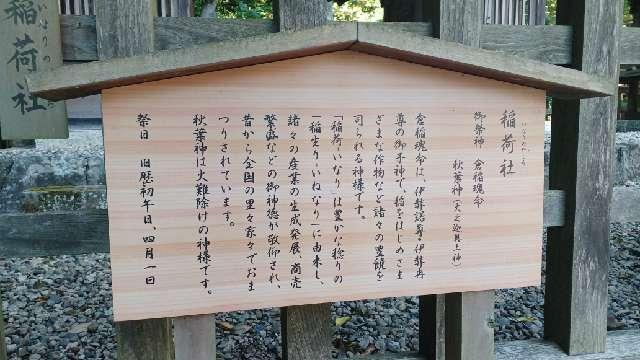 稲荷社
いなりのやしろ
御祭神 倉稲魂命
秋葉神(火之迦具土神)
倉稲魂命は、伊弉諾尊・伊弉冉
尊の御子神で、稲をはじめさま
ざまな作物など諸々の豊饒を
司られる神様です。
「稲荷・いなり」は豊かな稔りの
「稲生り・いねなり」に由来し、
諸々の産業の生成発展、商売
繁盛などの御神徳が敬仰され、
昔から全国の里々家々でおま
つりされています。
秋葉神は火難除けの神様です。
祭日 旧暦初午日、四月一日
稲荷
いなりの